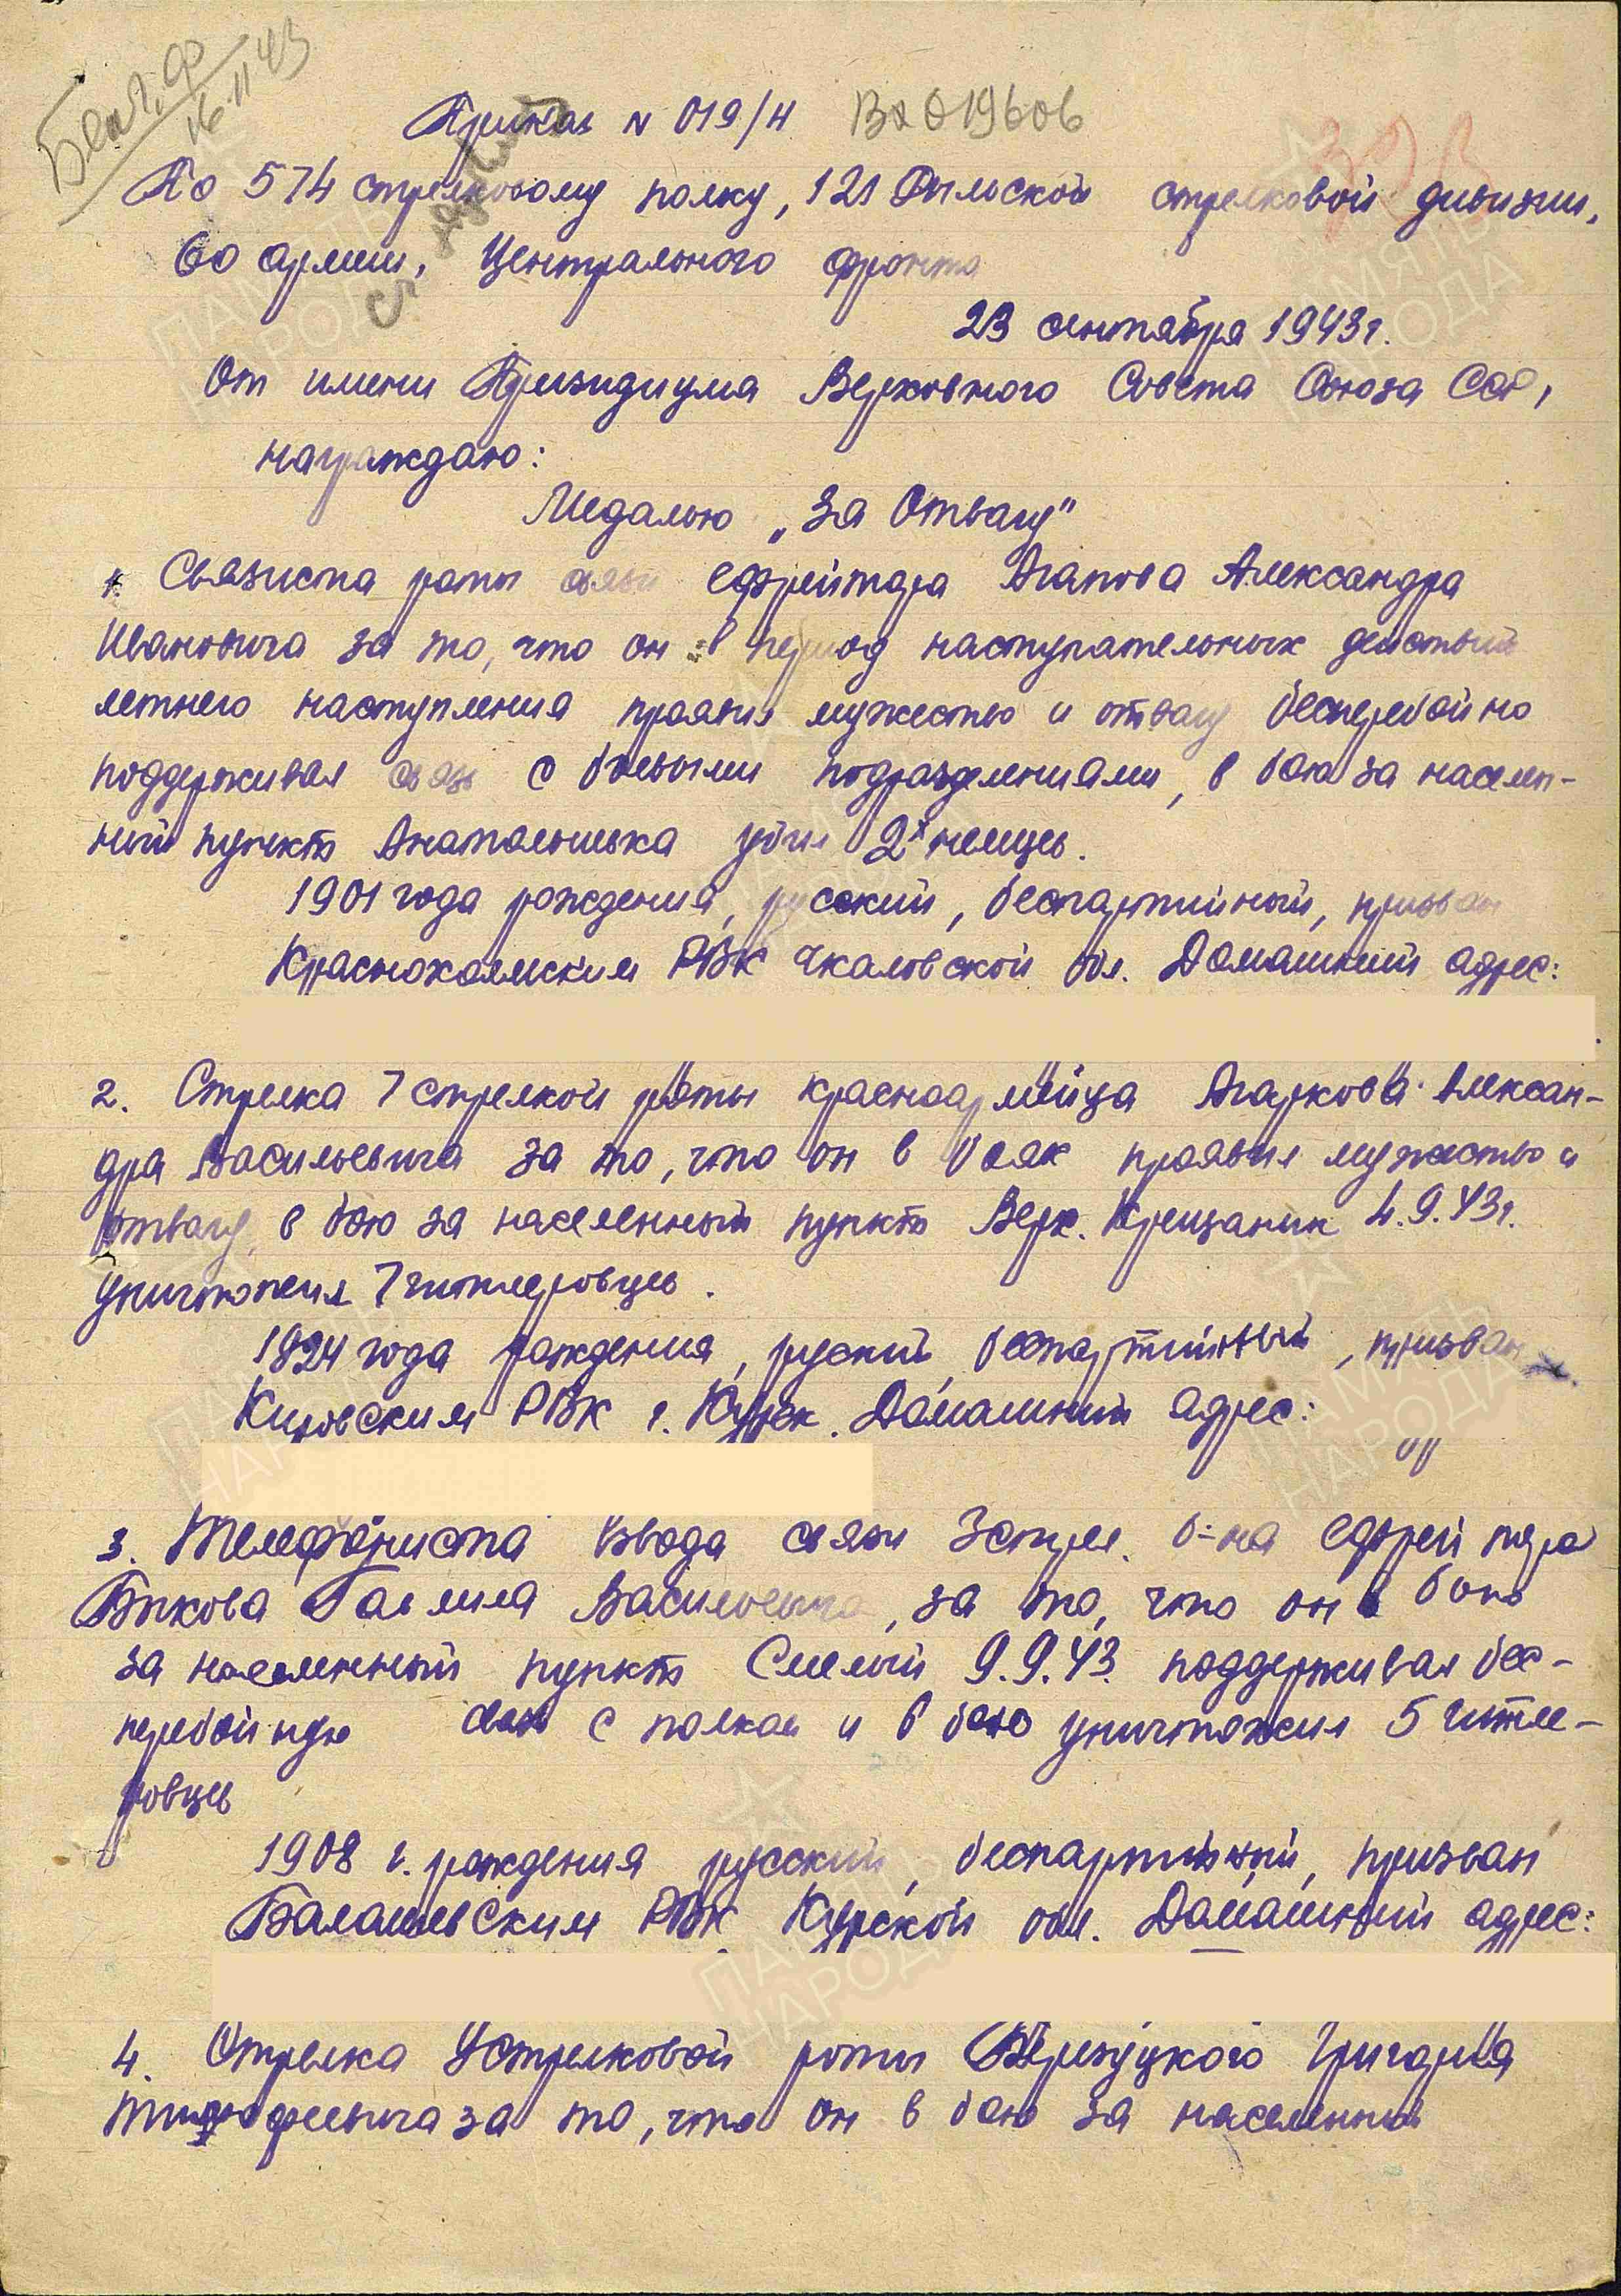 16.11.43
Приказ N 019/н Вх 019606
По 574 стрелковому полку, 121 Рыльской стрелковой дивизии,
60 армии, Центрального фронта
23 сентября 1943г.
От имени Президиума Верховного Совета Союза ССР,
награждаю:
Медалью „За Отвагу"
1. Связиста роты связи ефрейтора Агапова Александра
Ивановича за то, что он в период наступательных действий
летнего наступления проявил мужество и отвагу бесперебойно
поддерживал связь с боевыми подразделениями, в бою за населен-
ний пункт Анатольевка убил 2х немцев.
1901 года рождения, русский, беспартийный, призван
Краснохолмским РВК Чкаловской обл. Домашний адрес:
2. Стрелка 7 стрелкой роты красноармейца Агаркова Алексан-
дра Васильевича за то, что он в боях проявил мужество и
отвагу, в бою за населенный пункт Верх. Крещаник 4.9.43г.
уничтожил 7 гитлеровцев.
1924 года рождения, руский, беспартийный, призван
Кировским РВК г. Курск. Домашний адрес:
3. Телефониста взвода связи 3 стрел. б-на ефрейтора
Быкова Гавлила Васильевича, за то, что он в бою
за населенный пункт Смелый 9.9.43 поддерживал бес-
перебойную связь с полком и в бою уничтожил 5 гитле-
ровцев
1908 г. рождения русский, беспартийный, призван
Балашевским РВК Курской обл. Домашний адрес:
4. Стрелка 4 стрелковой роты Березуцкого Григория
Тимофеевича за то, что он в бою за населенный
ПАМЯТЬ
НАРОДА